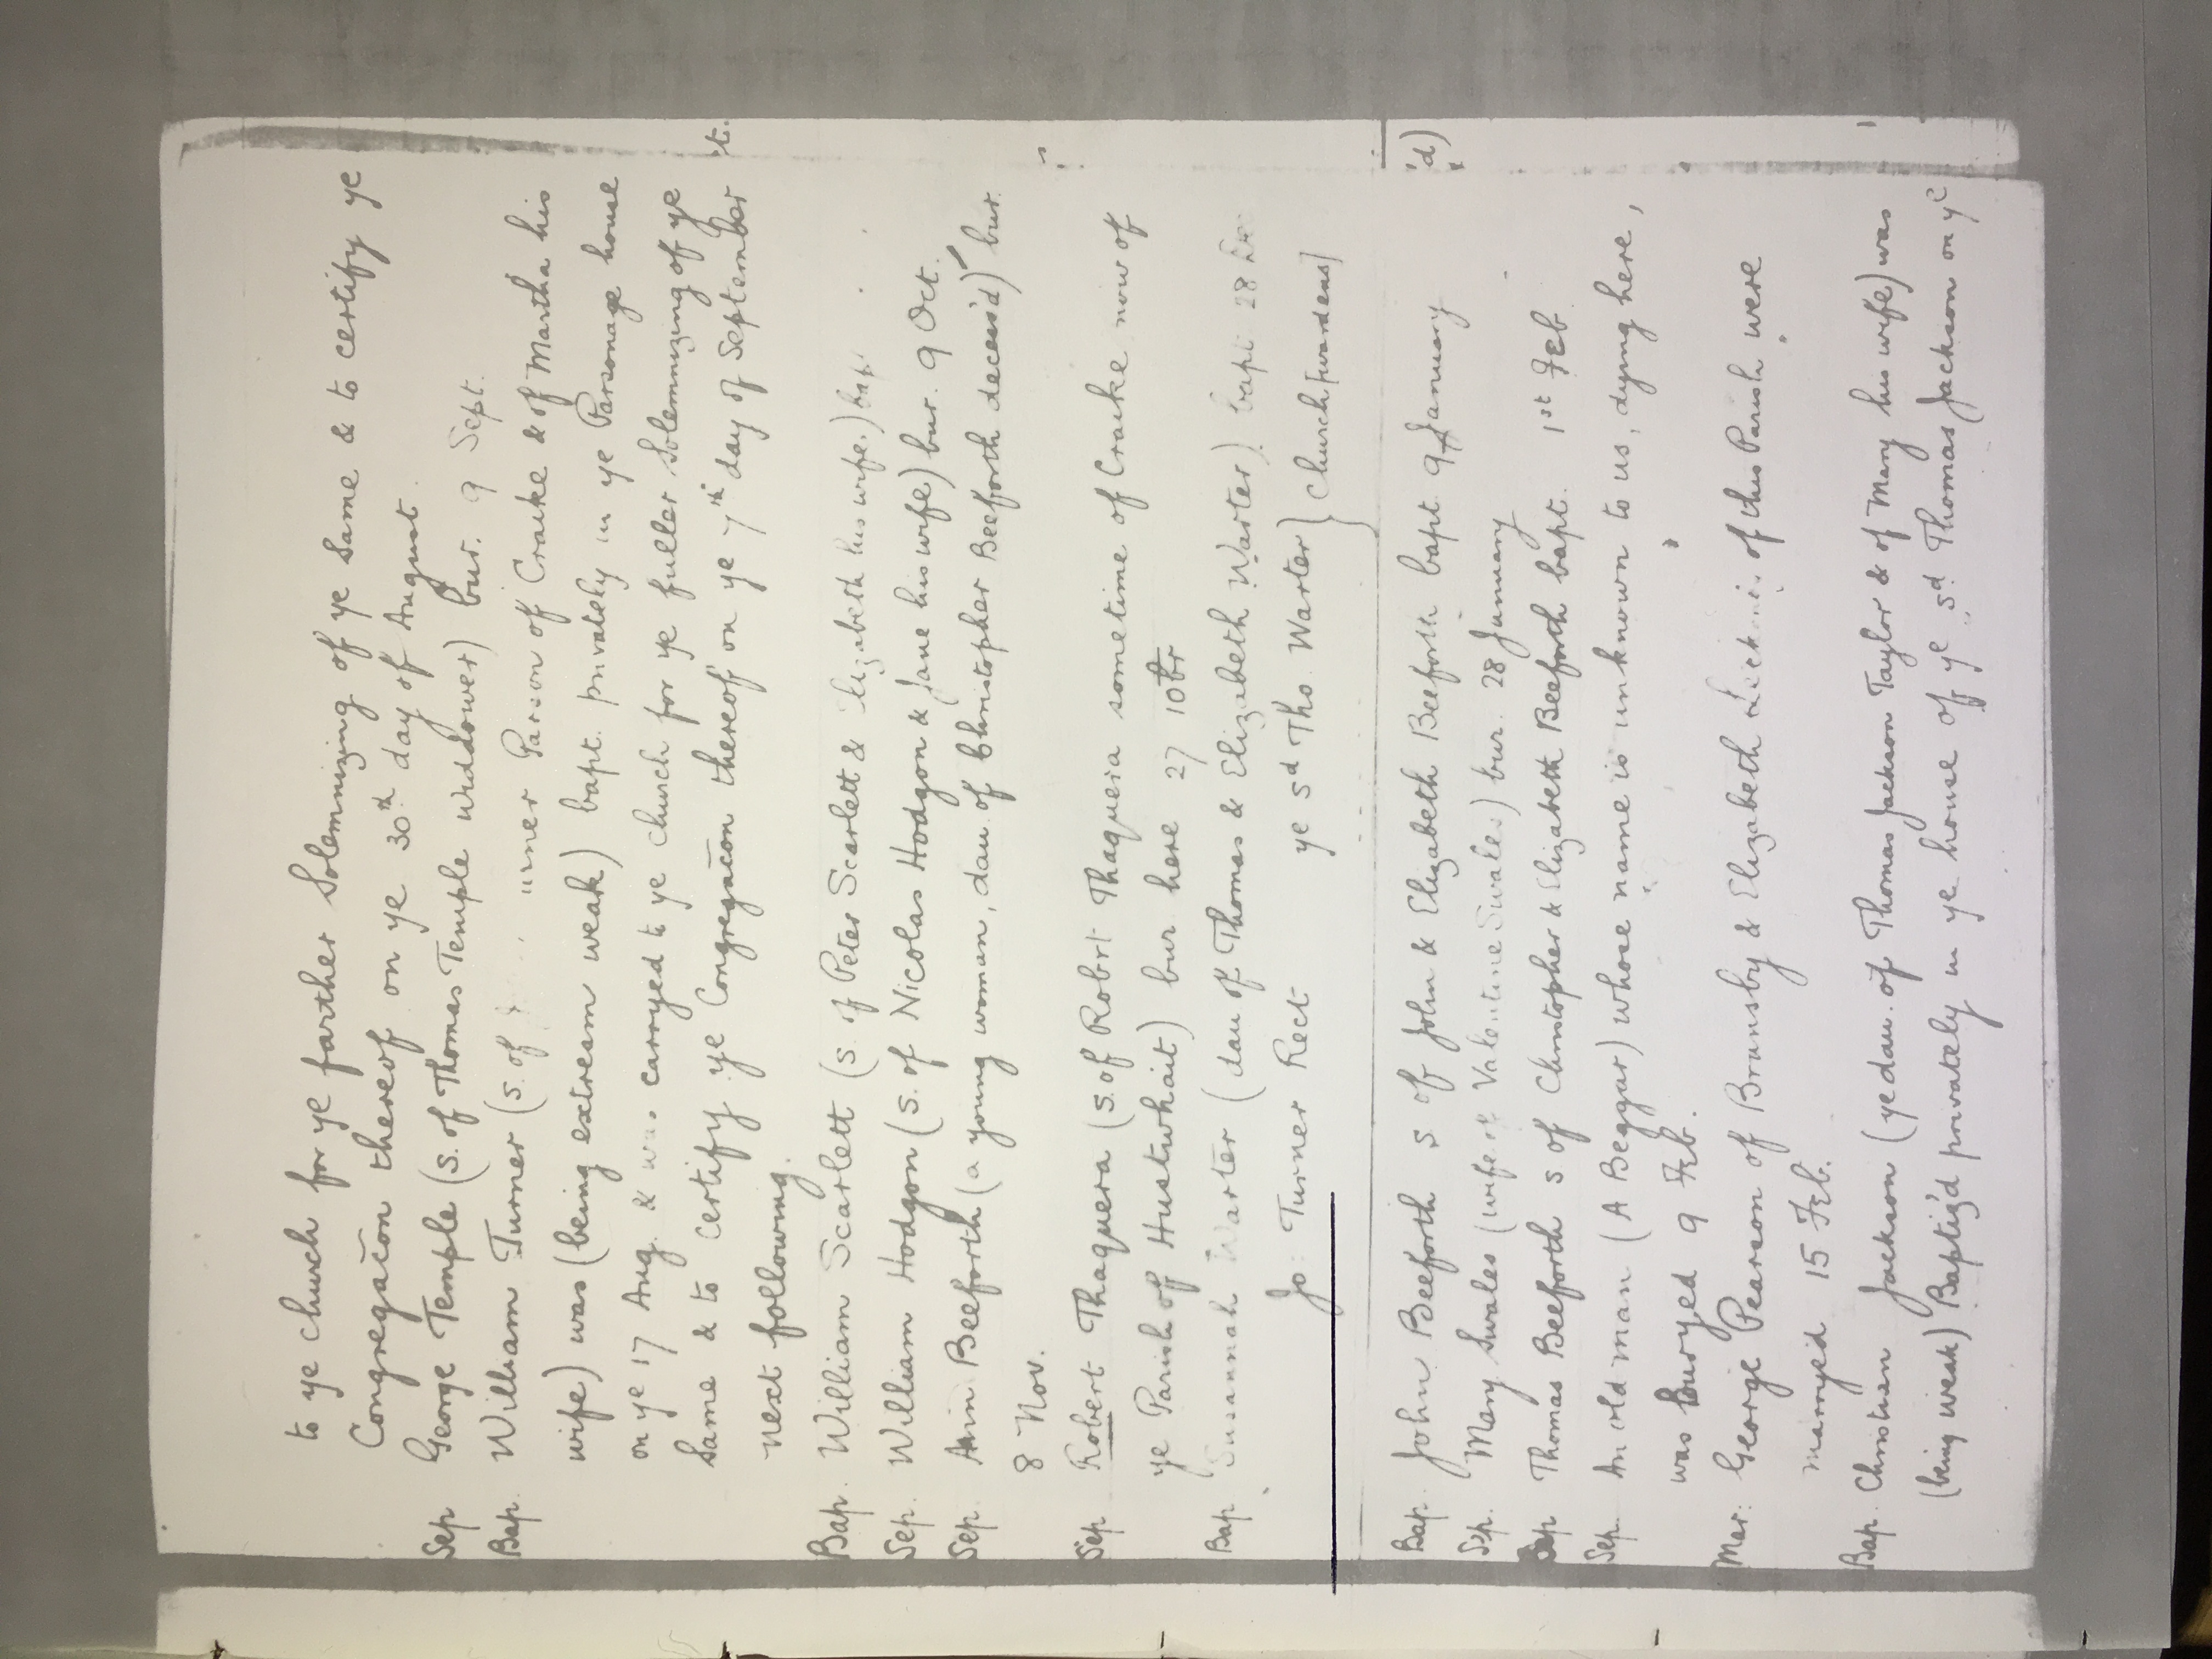 to ye church for ye farther Solemnizing of ye Same & to certify ye
Congregacõn thereof on ye 30th day of August.
Sep George Temple (s. of Thomas Temple widdower) bur. 9 Sept.
Bap. William Turner (s. of Parson of Craike & of Martha his
wife) was (being extream weak) bapt. privately in ye Parsonage house
on ye 17 Aug. & was carryed to ye church for ye fuller Solemnizing of ye
Same & to certify ye Congregacõn thereof on ye 7th day of September
next following.
Bap. William Scarlett (s. of Peter Scarlett & Elizabeth his wife.) bap
Sep. William Hodgon (s. of Nicolas Hodgon & Jane his wife) bur. 9 Oct.
Sep. Ann Beeforth (a young woman, dau. of Christopher Beeforth deceas'd) bur.
8 Nov.
Sep. Robert Thaquera (s. of Robrt Thaquera sometime of Craike now of
ye Parish of Hustwhait) bur here 27 10br
Bap Susannah Warter (dau of Thomas & Elizabeth Warter) bapt 28
Jo: Turner Rect ye sd Tho. Warter } Church[wardens]
Bap. John Beeforth s of John & Elizabeth Beeforth bapt 9 January
Sep. Mary Swales (wife of Valentine Swales) bur. 28 January
Bap Thomas Beeforth s of Christopher & Elizabeth Beeforth bapt. 1st Feb.
Sep. An old man (A Beggar) whose name is unknown to us, dying here,
was buryed 9 Feb.
Mar: George Pearson of Brunsby & Elizabeth of this Parish were
marryed 15 Feb.
Bap. Christian Jackson (ye dau. of Thomas Jackson Taylor & of Mary his wife) was
(being weak) Baptiz'd privately in ye house of ye sd Thomas Jackson on ye